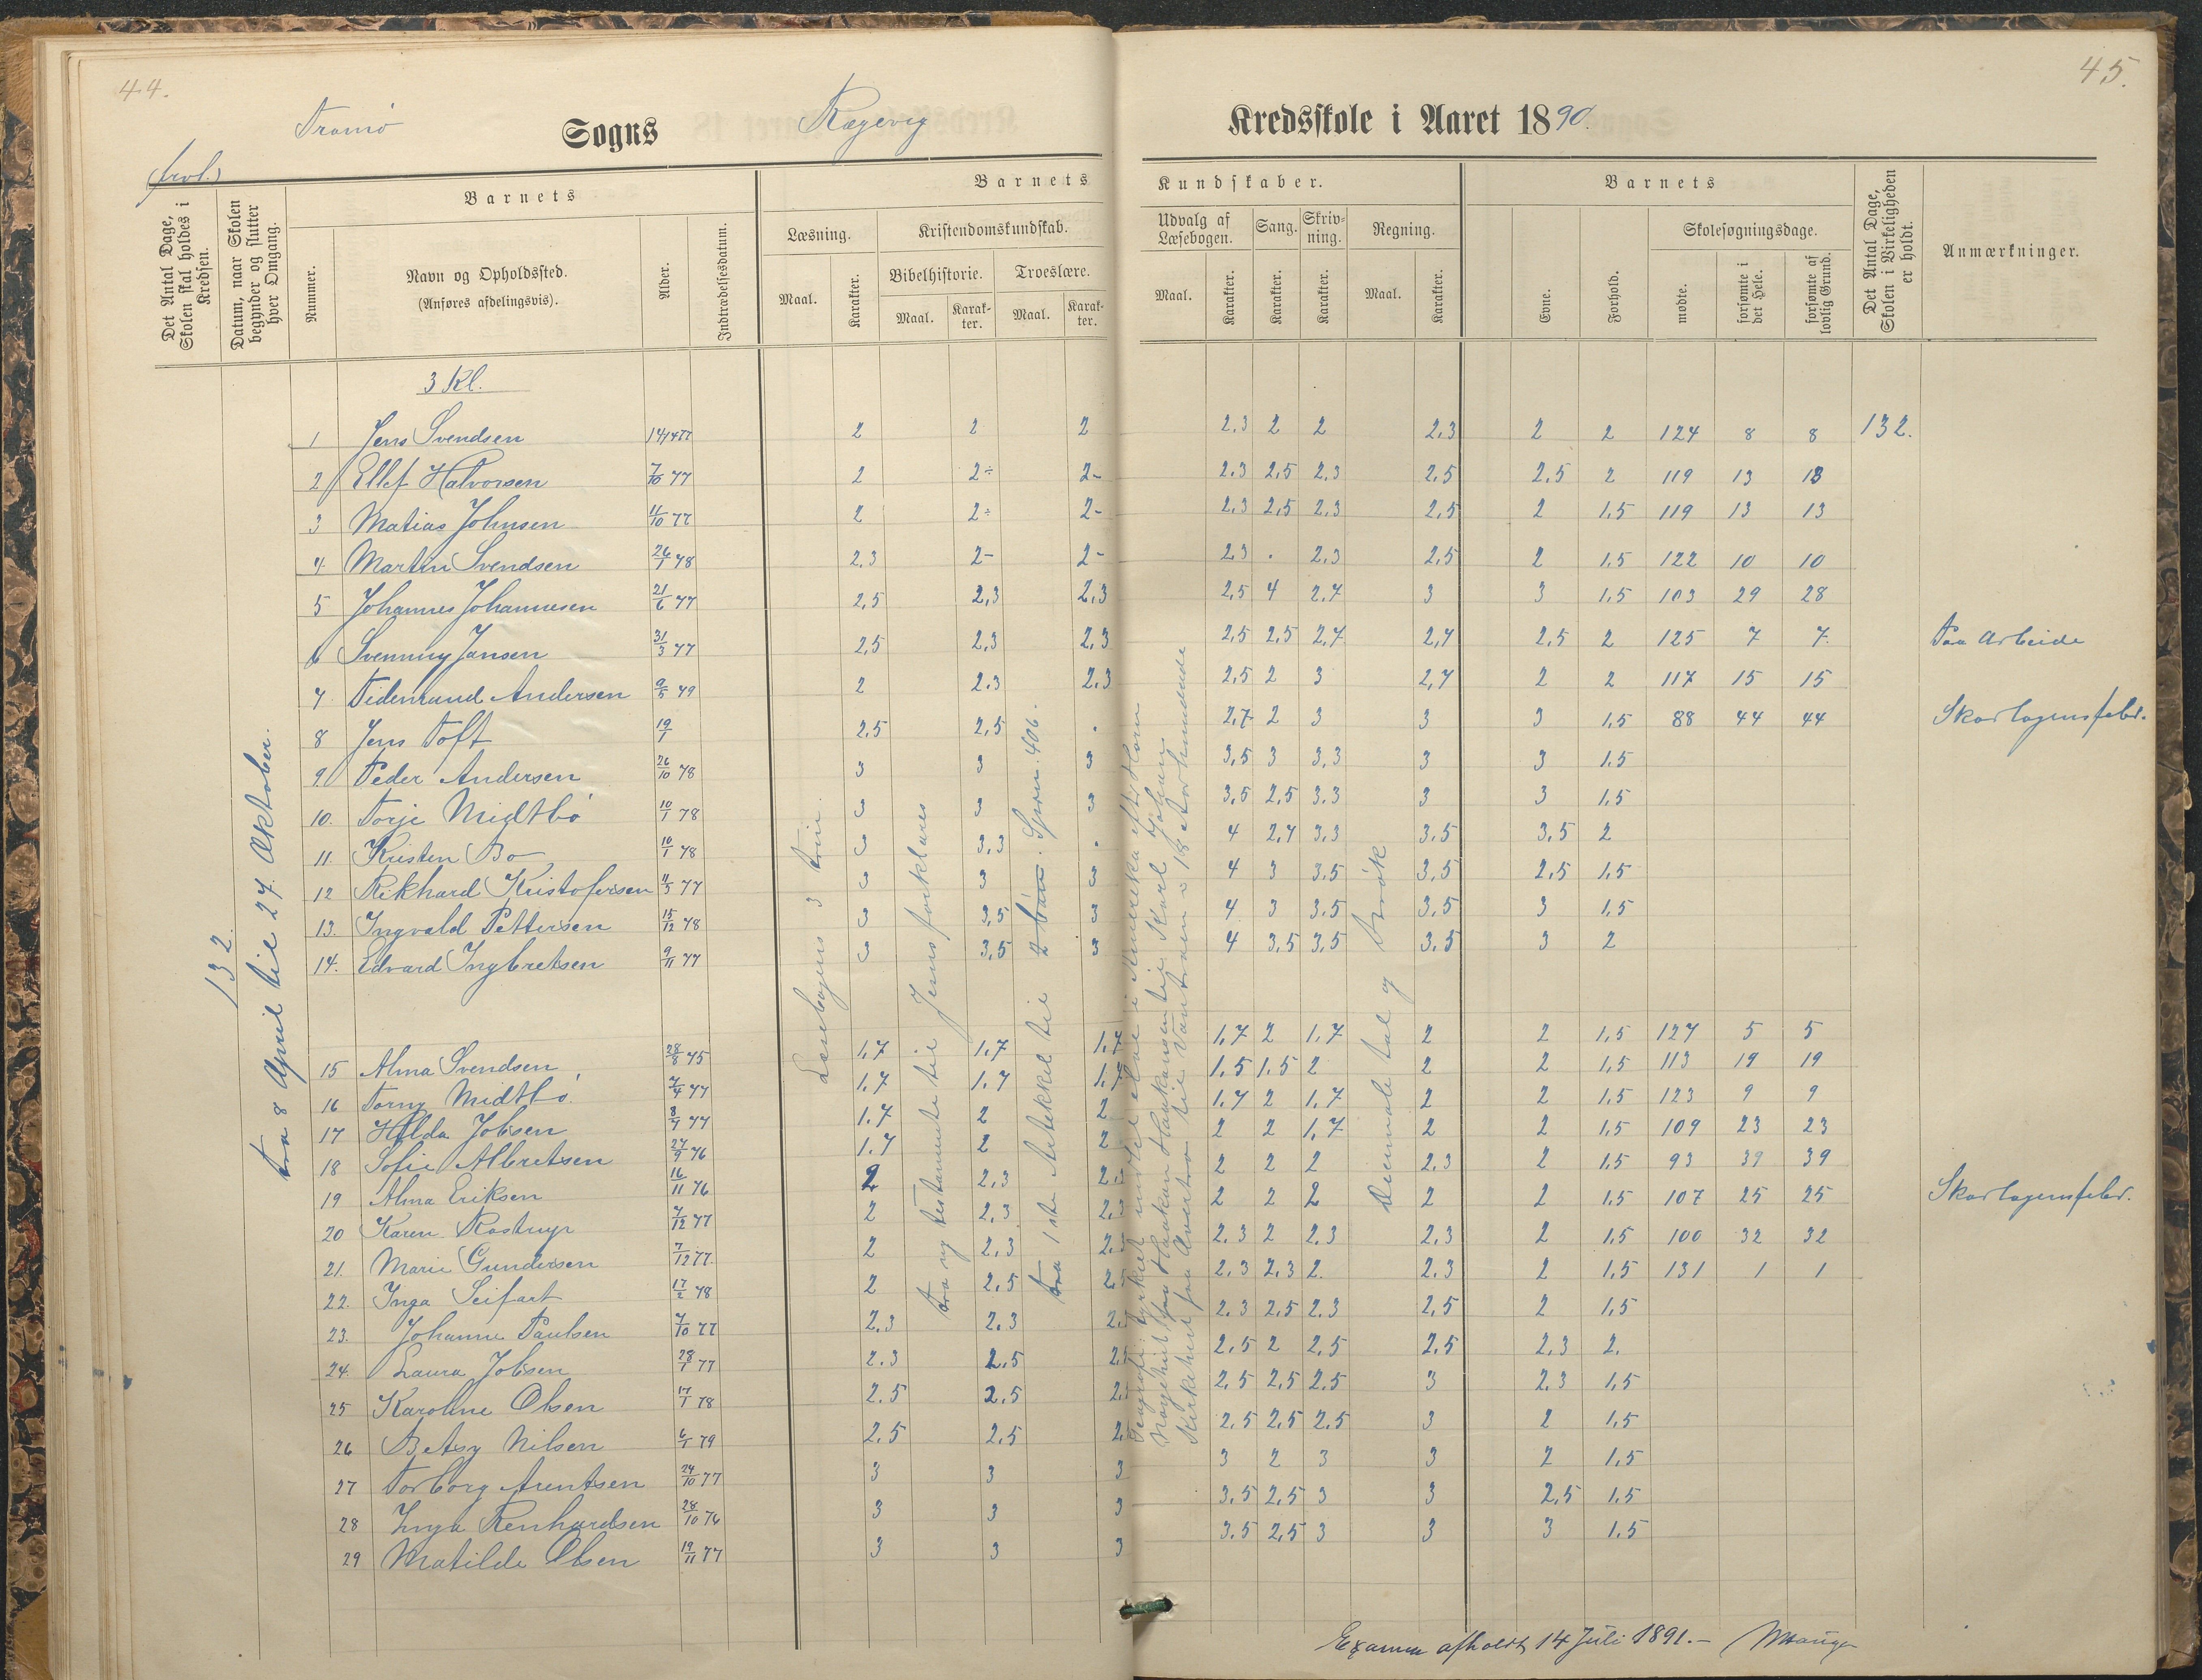 44.
45.
Tromø Sogns Rægevig Kredsskole i Aaret 1890.
Det Antal Dage, Skolen skal holdes i Kredsen.
Datum, naar Skolen begynder og slutter hver Omgang.
Barnets
Nummer.
Navn og Opholdssted.
(Anføres afdelingsvis).
Alder.
Indtrædelsesdatum.
Barnets Kundskaber.
Læsning. Maal. Karakter.
Kristendomskundskab.
Bibelhistorie. Maal. Karakter.
Troeslære. Maal. Karakter.
Udvalg af Læsebogen. Maal. Karakter.
Sang. Karakter.
Skrivning. Karakter.
Regning. Maal. Karakter.
Barnets
Evne.
Forhold.
Skolesøgningsdage.
mødte.
forsømte i det Hele.
forsømte af lovlig Grund.
Det Antal Dage, Skolen i Virkeligheden er holdt.
Anmærkninger.
132
fra 8 April til 27. Oktober.
3 Kl.
1 Jens Svendsen 2 2 2 2.3 2 2 2.3 2 2 124 8 8 132.
2 Ellef Halvorsen 7/10 77 2 2÷ 2- 2.3 2,5 2.3 2.5 2.5 2 119 13 13
3 Matias Johnsen 11/10 77 2 2÷ 2- 2.3 2,5 2.3 2,5 2 1.5 119 13 13
4. Martin Svendsen 26/1 78 2.3 2- 2- 2.3 . 2.3 2,5 2 1.5 122 10 10
5 Johannes Johannesen 21/6 77 2,5 2,3 2.3 2,5 4 2.7 3 3 1.5 103 29 28
6 Svenning Jansen 31/3 77 2,5 2,3 2,3 2,5 2.5 2,7 2,7 2,5 2 125 7 7. Paa Arbeide
7 Tidemand Andersen 9/5 79 2 2.3 2.3 2,5 2 3 2,7 2 2 117 15 15
8 Jens Toft 19/1 2.5 2,5 . 2,7 2 3 3 3 1.5 88 44 44 Skarlagensfeber.
9. Peder Andersen 26/10 78 3 3 3 3,5 3 3,3 3 3 1.5
10. Torje Midtbø 10/1 78 3 3 3 3,5 2,5 3.3 3 3 1,5
11. Kristen Bo 10/1 78 3 3,3 . 4 2,7 3,3 3.5 3,5 2
12 Rikhard Kristofersen 11/5 77 3 3 3 4 3 3.5 3,5 2,5 1.5
13. Ingvald Pettersen 15/12 78 3 3,5 3 4 3 3.5 3.5 3 1.5
14. Edvard Ingbretsen 9/11 77 3 3,5 3 4 3.5 3,5 3.5 3 2
15 Alma Svendsen 28/8 75 1,7 1.7 1,7 1,7 2 1.7 2 2 1,5 127 5 5
16 Torny Midtbø 7/4 77 1.7 1.7 1,7 1.5 1.5 2 2 2 1,5 113 19 19
17 Hilda Jobsen 1.7 2 2 1.7 2 1,7 2 2 1.5 123 9 9
18 Sofie Albretsen 27/9 76 1.7 2 2 2 2 1,7 2 2 1.5 109 23 23
19 Alma Eriksen 16/11 76 2 2.3 2.3 2 2 2 2.3 2 1.5 93 39 39
20 Karen Rostrup 7/12 77 2 2.3 2.3 2 2 2 2 2 1.5 107 25 25 Skarlagensfeber.
21. Marie Gundersen 7/12 77. 2 2.3 2.3 2 2.3 2.3 2 1.5 100 32 32
22. Inga Seifart 17/2 78 2 2.5 2,5 2.3 2,3 2. 2.3 2 1.5 131 1 1
23. Johanne Paulsen 7/10 77 2.3 2.3 2.3 2,5 2.3 2,5 2 1,5
24. Laura Jobsen 28/1 77 2.3 2.5 2,5 2 2,5 2.5 2,3 2.
25 Karoline Olsen 17/1 78 2.5 2,5 2,5 2,5 2.5 3 2.3 1,5
26 Betsy Nilsen 6/1 79 2.5 2.5 2,5 2,5 2.5 3 2 1.5
27 Torborg Arentsen 24/10 77 3 3 3 3 2 3 3 2 1.5
28 Inga Renhardsen 28/10 76 3 3 3 3.5 2,5 3 3 2,5 1.5
29 Matilde Olsen 19/11 77 3 3 3 3.5 2,5 3 3 3 1.5
Læsebogens 3 trin.
fra ny testamente til Jesus forklares
fra 1ste Artikkel til 2 bøn. Spørs. 406.
Kirkehist fra
Desimale tal og brøk
Examen afholdt 14 Juli 1891.–